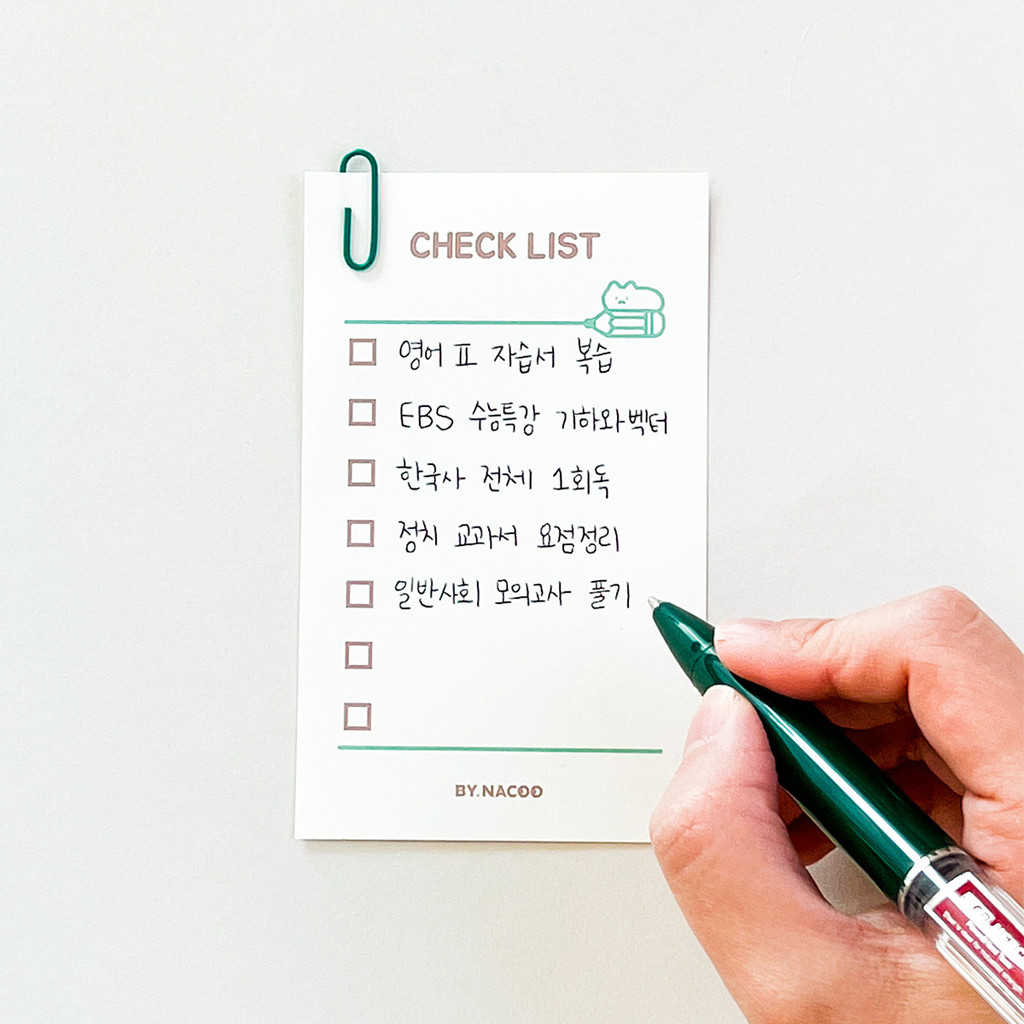 CHECK LIST
영어 Ⅱ 자습서 복습
EBS 수능특강 기하와벡터
한국사 전체 1회독
정치 교과서 요점정리
일반사회 모의고사 풀기
BY.NACOO